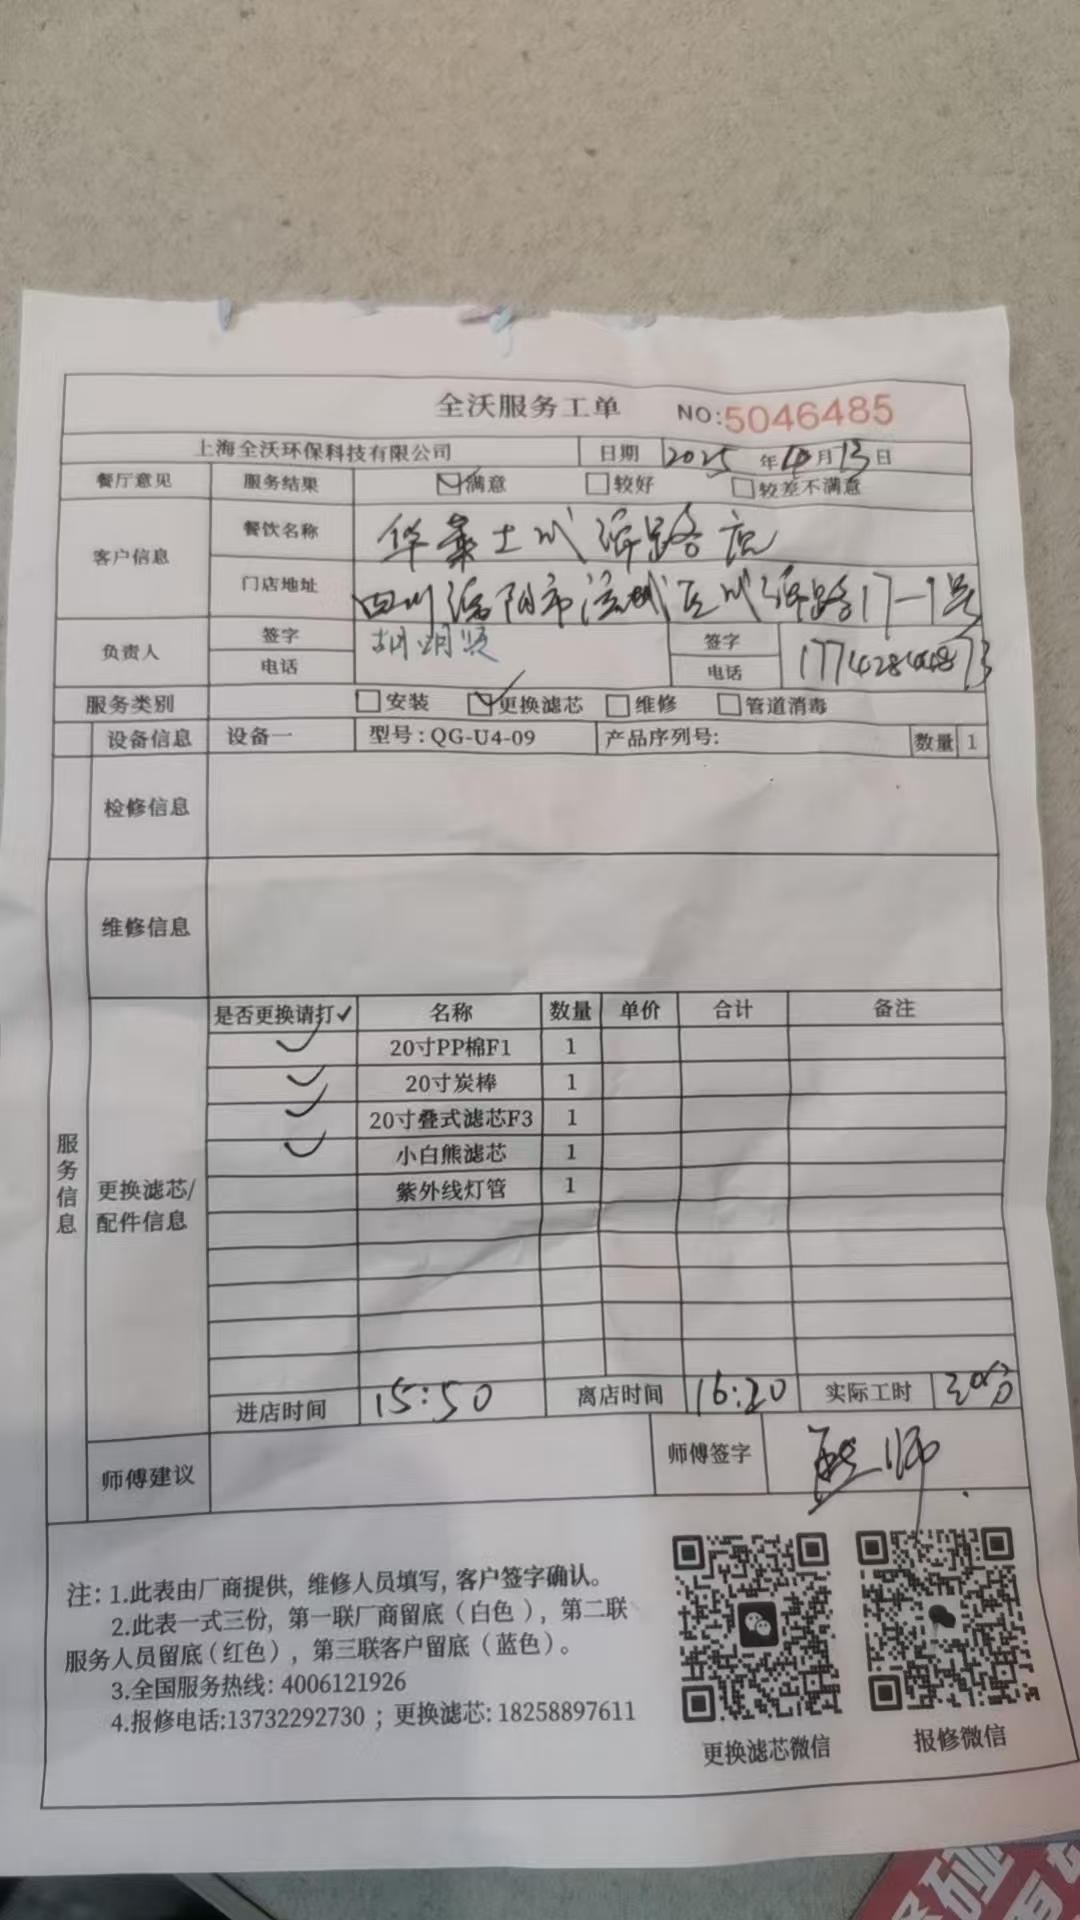 全沃服务工单 NO:5046485
上海全沃环保科技有限公司 日期 2025 年 4 月 13 日
餐厅意见 服务结果 满意 较好 较差不满意
客户信息 餐饮名称 华莱士川 路店
门店地址 四川 阳市 区川 路17-1号
负责人 签字 胡 签字
电话 电话 17742844873
服务类别 安装 更换滤芯 维修 管道消毒
设备信息 设备一 型号:QG-U4-09 产品序列号: 数量 1
检修信息
维修信息
服务信息
更换滤芯/配件信息
是否更换请打✓ 名称 数量 单价 合计 备注
✓ 20寸PP棉F1 1
✓ 20寸炭棒 1
✓ 20寸叠式滤芯F3 1
✓ 小白熊滤芯 1
紫外线灯管 1
进店时间 15:50 离店时间 16:20 实际工时 30分
师傅建议 师傅签字 师
注: 1.此表由厂商提供, 维修人员填写, 客户签字确认。
2.此表一式三份, 第一联厂商留底(白色), 第二联
服务人员留底(红色), 第三联客户留底(蓝色)。
3.全国服务热线: 4006121926
4.报修电话:13732292730 ; 更换滤芯: 18258897611
更换滤芯微信 报修微信